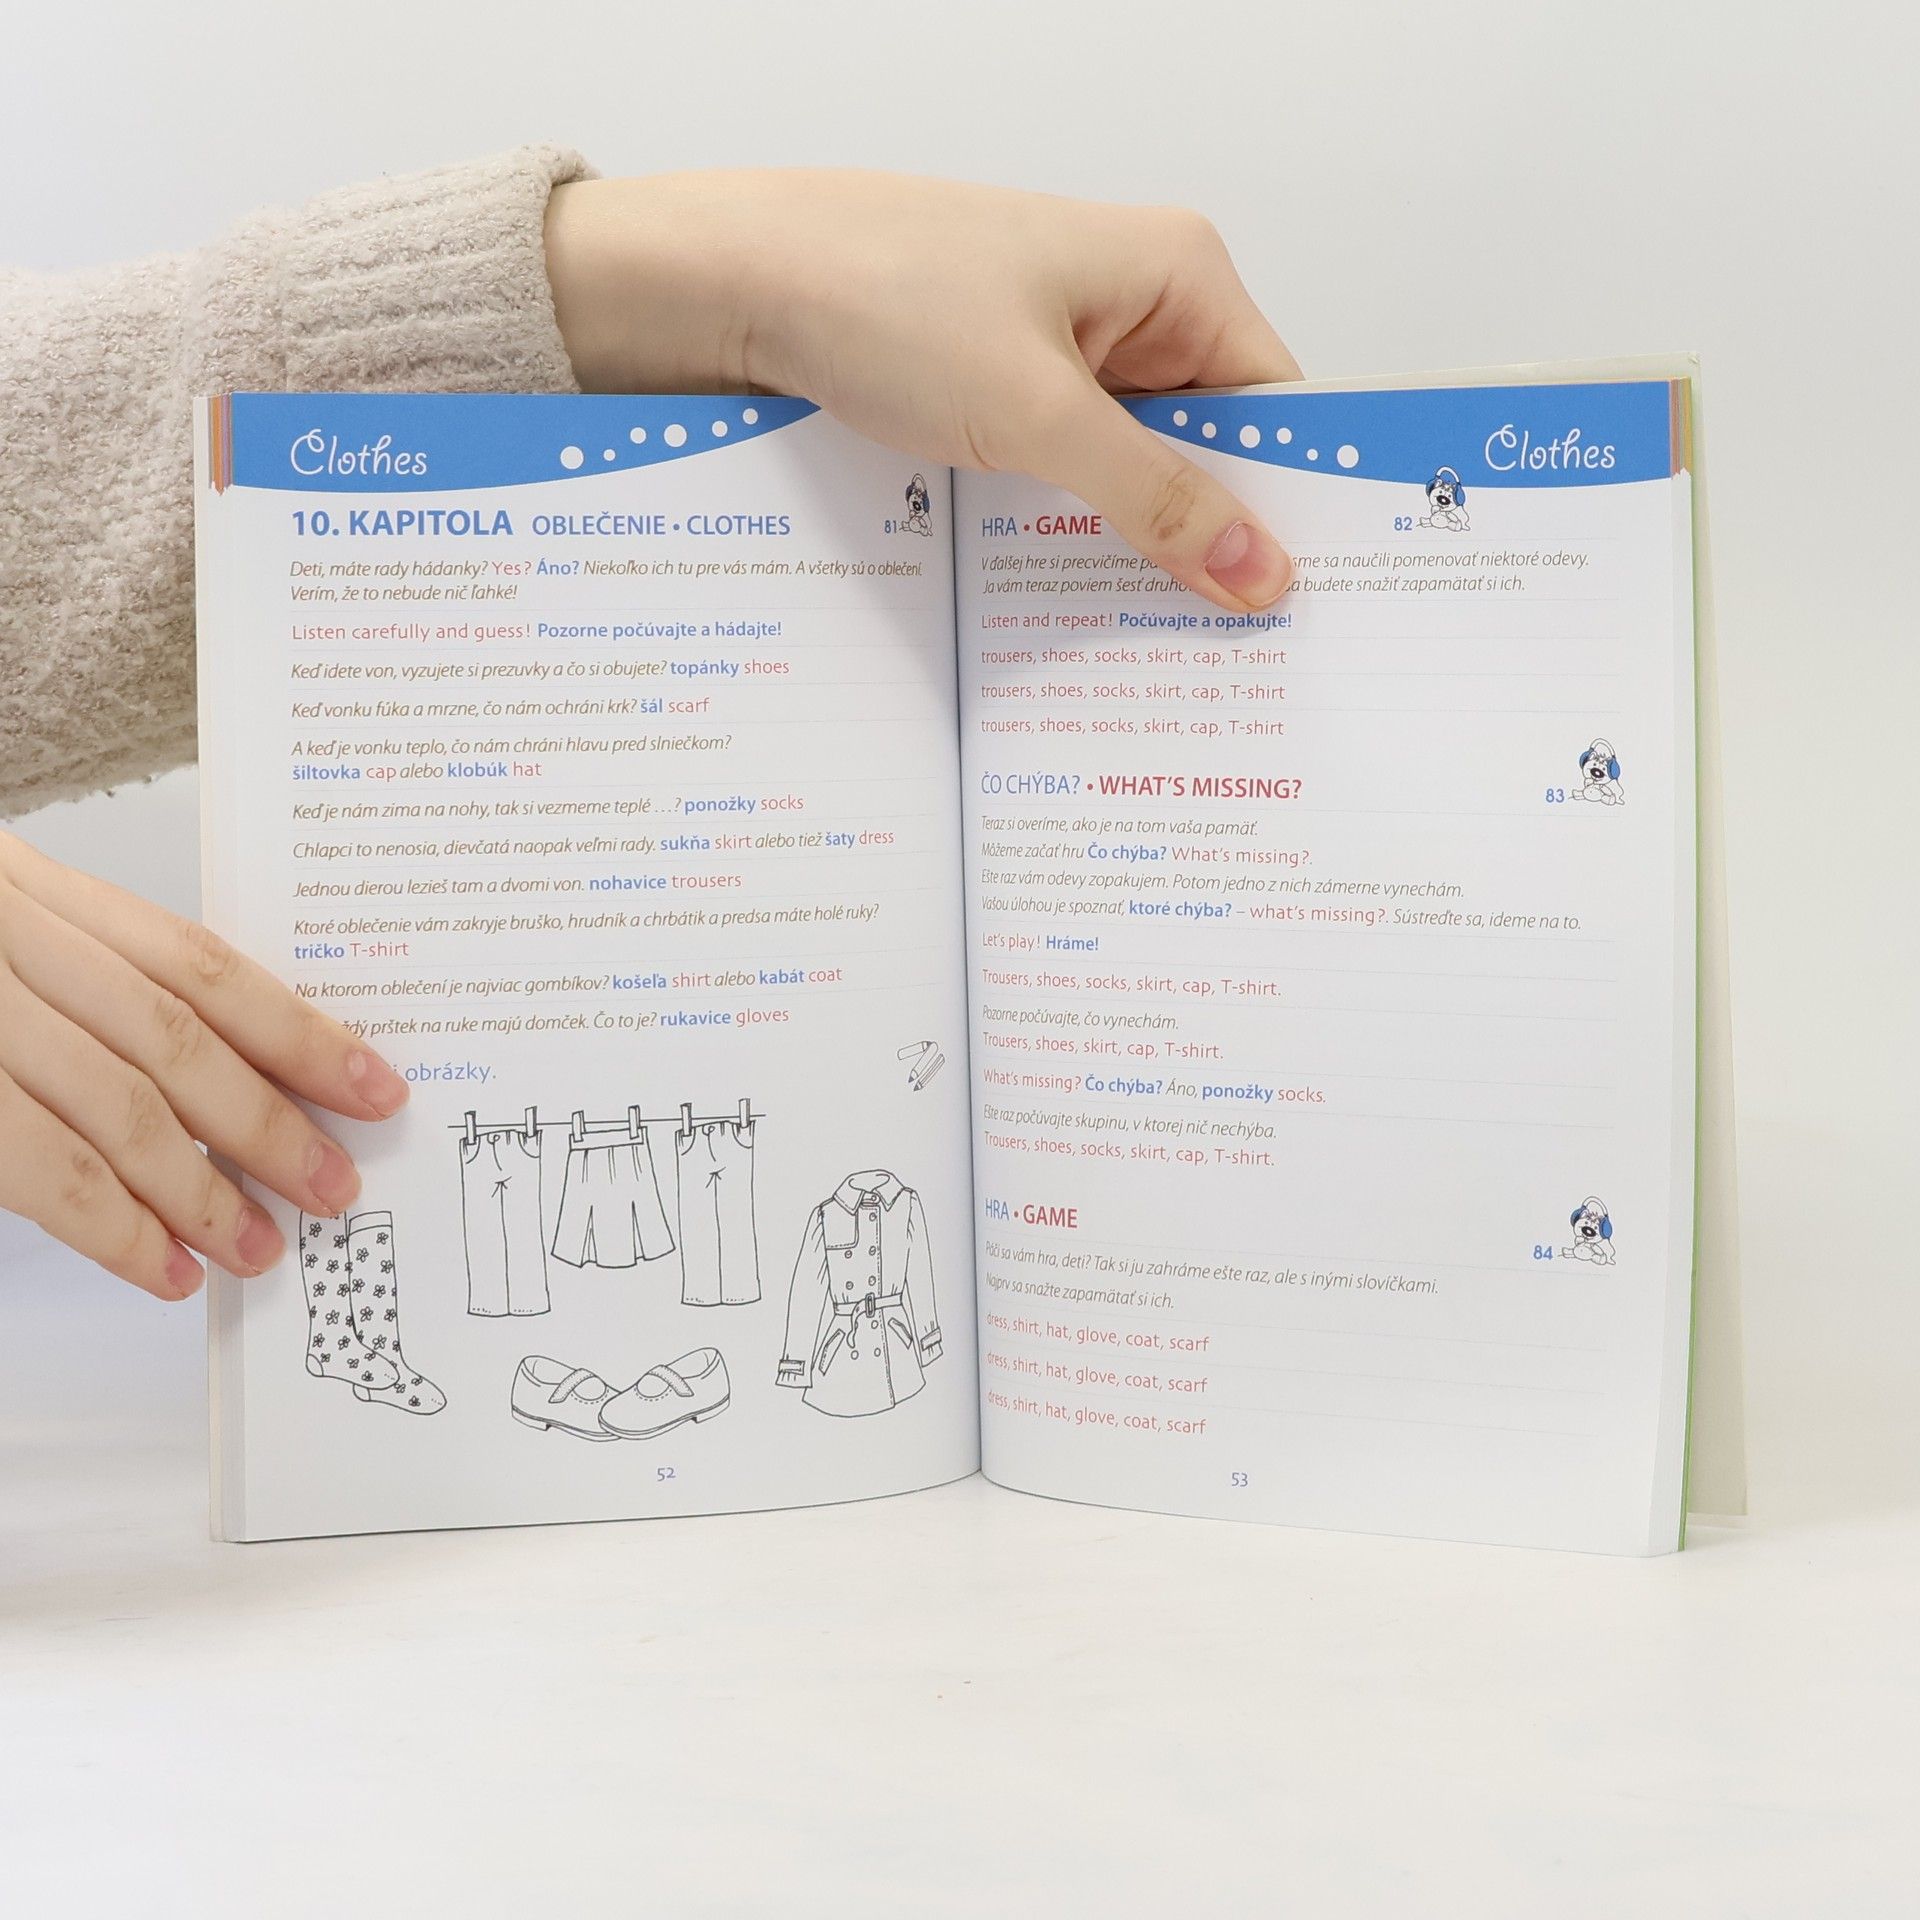 Clothes
10. KAPITOLA OBLEČENIE • CLOTHES
81
Deti, máte rady hádanky? Yes? Áno? Niekoľko ich tu pre vás mám. A všetky sú o oblečení.
Verím, že to nebude nič ľahké!
Listen carefully and guess! Pozorne počúvajte a hádajte!
Keď idete von, vyzujete si prezuvky a čo si obujete? topánky shoes
Keď vonku fúka a mrzne, čo nám ochráni krk? šál scarf
A keď je vonku teplo, čo nám chráni hlavu pred slniečkom?
šiltovka cap alebo klobúk hat
Keď je nám zima na nohy, tak si vezmeme teplé ...? ponožky socks
Chlapci to nenosia, dievčatá naopak veľmi rady. sukňa skirt alebo tiež šaty dress
Jednou dierou lezieš tam a dvomi von. nohavice trousers
Ktoré oblečenie vám zakryje bruško, hrudník a chrbátik a predsa máte holé ruky?
tričko T-shirt
Na ktorom oblečení je najviac gombíkov? košeľa shirt alebo kabát coat
prštek na ruke majú domček. Čo to je? rukavice gloves
obrázky.
52
Clothes
HRA • GAME
82
V ďalšej hre si precvičíme sme sa naučili pomenovať niektoré odevy.
Ja vám teraz poviem šesť budete snažiť zapamätať si ich.
Listen and repeat! Počúvajte a opakujte!
trousers, shoes, socks, skirt, cap, T-shirt
trousers, shoes, socks, skirt, cap, T-shirt
trousers, shoes, socks, skirt, cap, T-shirt
ČO CHÝBA? • WHAT'S MISSING?
83
Teraz si overíme, ako je na tom vaša pamäť.
Môžeme začať hru Čo chýba? What's missing?.
Ešte raz vám odevy zopakujem. Potom jedno z nich zámerne vynechám.
Vašou úlohou je spoznať, ktoré chýba? – what's missing?. Sústreďte sa, ideme na to.
Let's play! Hráme!
Trousers, shoes, socks, skirt, cap, T-shirt.
Pozorne počúvajte, čo vynechám.
Trousers, shoes, skirt, cap, T-shirt.
What's missing? Čo chýba? Áno, ponožky socks.
Ešte raz počúvajte skupinu, v ktorej nič nechýba.
Trousers, shoes, socks, skirt, cap, T-shirt.
HRA • GAME
84
Páči sa vám hra, deti? Tak si ju zahráme ešte raz, ale s inými slovíčkami.
Najprv sa snažte zapamätať si ich.
dress, shirt, hat, glove, coat, scarf
dress, shirt, hat, glove, coat, scarf
dress, shirt, hat, glove, coat, scarf
53